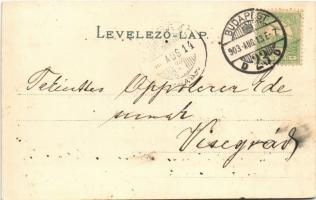 LEVELEZŐ-LAP.
BUDAPEST
903 AUG 13 E 7
AUG 14
Tekintetes Oppolerer Ede
urnak
Visegrád